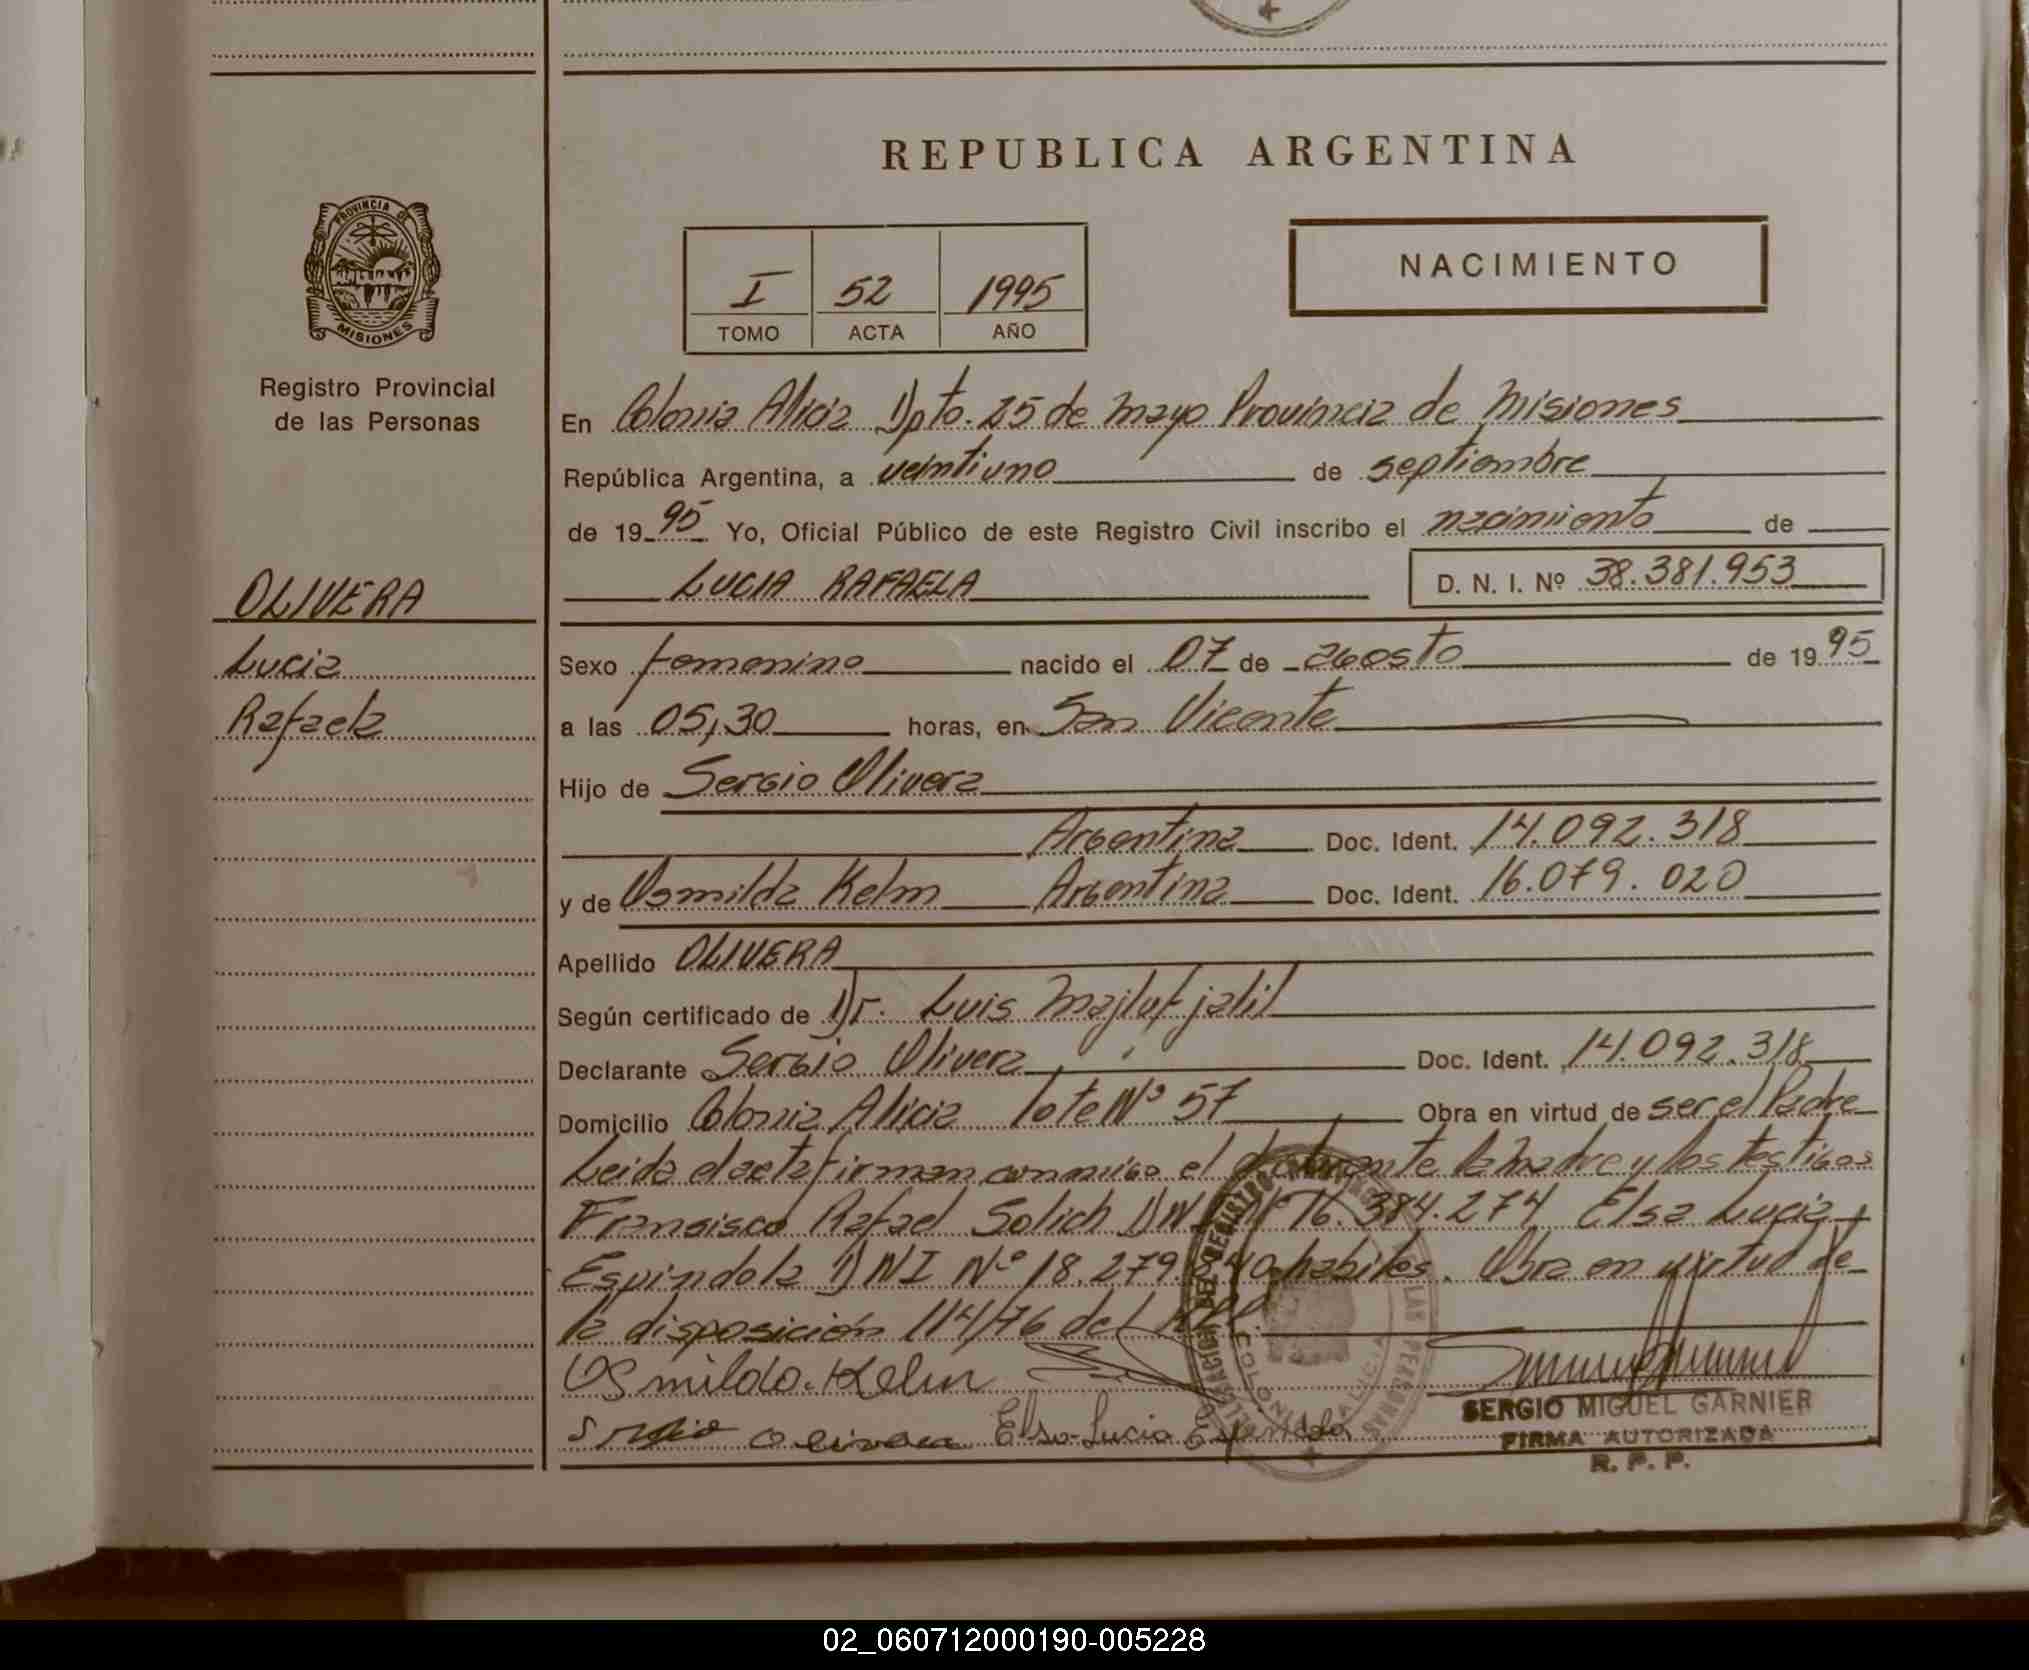 REPUBLICA ARGENTINA
PROVINCIA DE
MISIONES
Registro Provincial
de las Personas
I 52 1995
TOMO ACTA AÑO
NACIMIENTO
En Colonia Alicia Dpto. 25 de mayo Provincia de Misiones
República Argentina, a veintiuno de septiembre
de 1995 Yo, Oficial Público de este Registro Civil inscribo el nacimiento de
LUCIA RAFAELA D. N. I. Nº 38.381.953
OLIVERA
Lucia
Rafaela
Sexo femenino nacido el 07 de agosto de 1995
a las 05,30 horas, en San Vicente
Hijo de Sergio Olivera
Argentina Doc. Ident. 14.092.318
y de Osmilda Kelm Argentina Doc. Ident. 16.079.020
Apellido OLIVERA
Según certificado de Dr. Luis Majluf jalil
Declarante Sergio Olivera Doc. Ident. 14.092.318
Domicilio Colonia Alicia lote Nº 57 Obra en virtud de ser el Padre
Leida el acta firman conmigo el declarante la madre y los testigos
Fransisco Rafael Solich DNI Nº 16.384.274 Elsa Lucia
Espindola DNI Nº 18.279. habiles. Obra en virtud de
la disposición 114/76 del
Osmildo. Kelm
Olivera Elsa Lucia Espindola
SERGIO MIGUEL GARNIER
FIRMA AUTORIZADA
R. P. P.
02_060712000190-005228